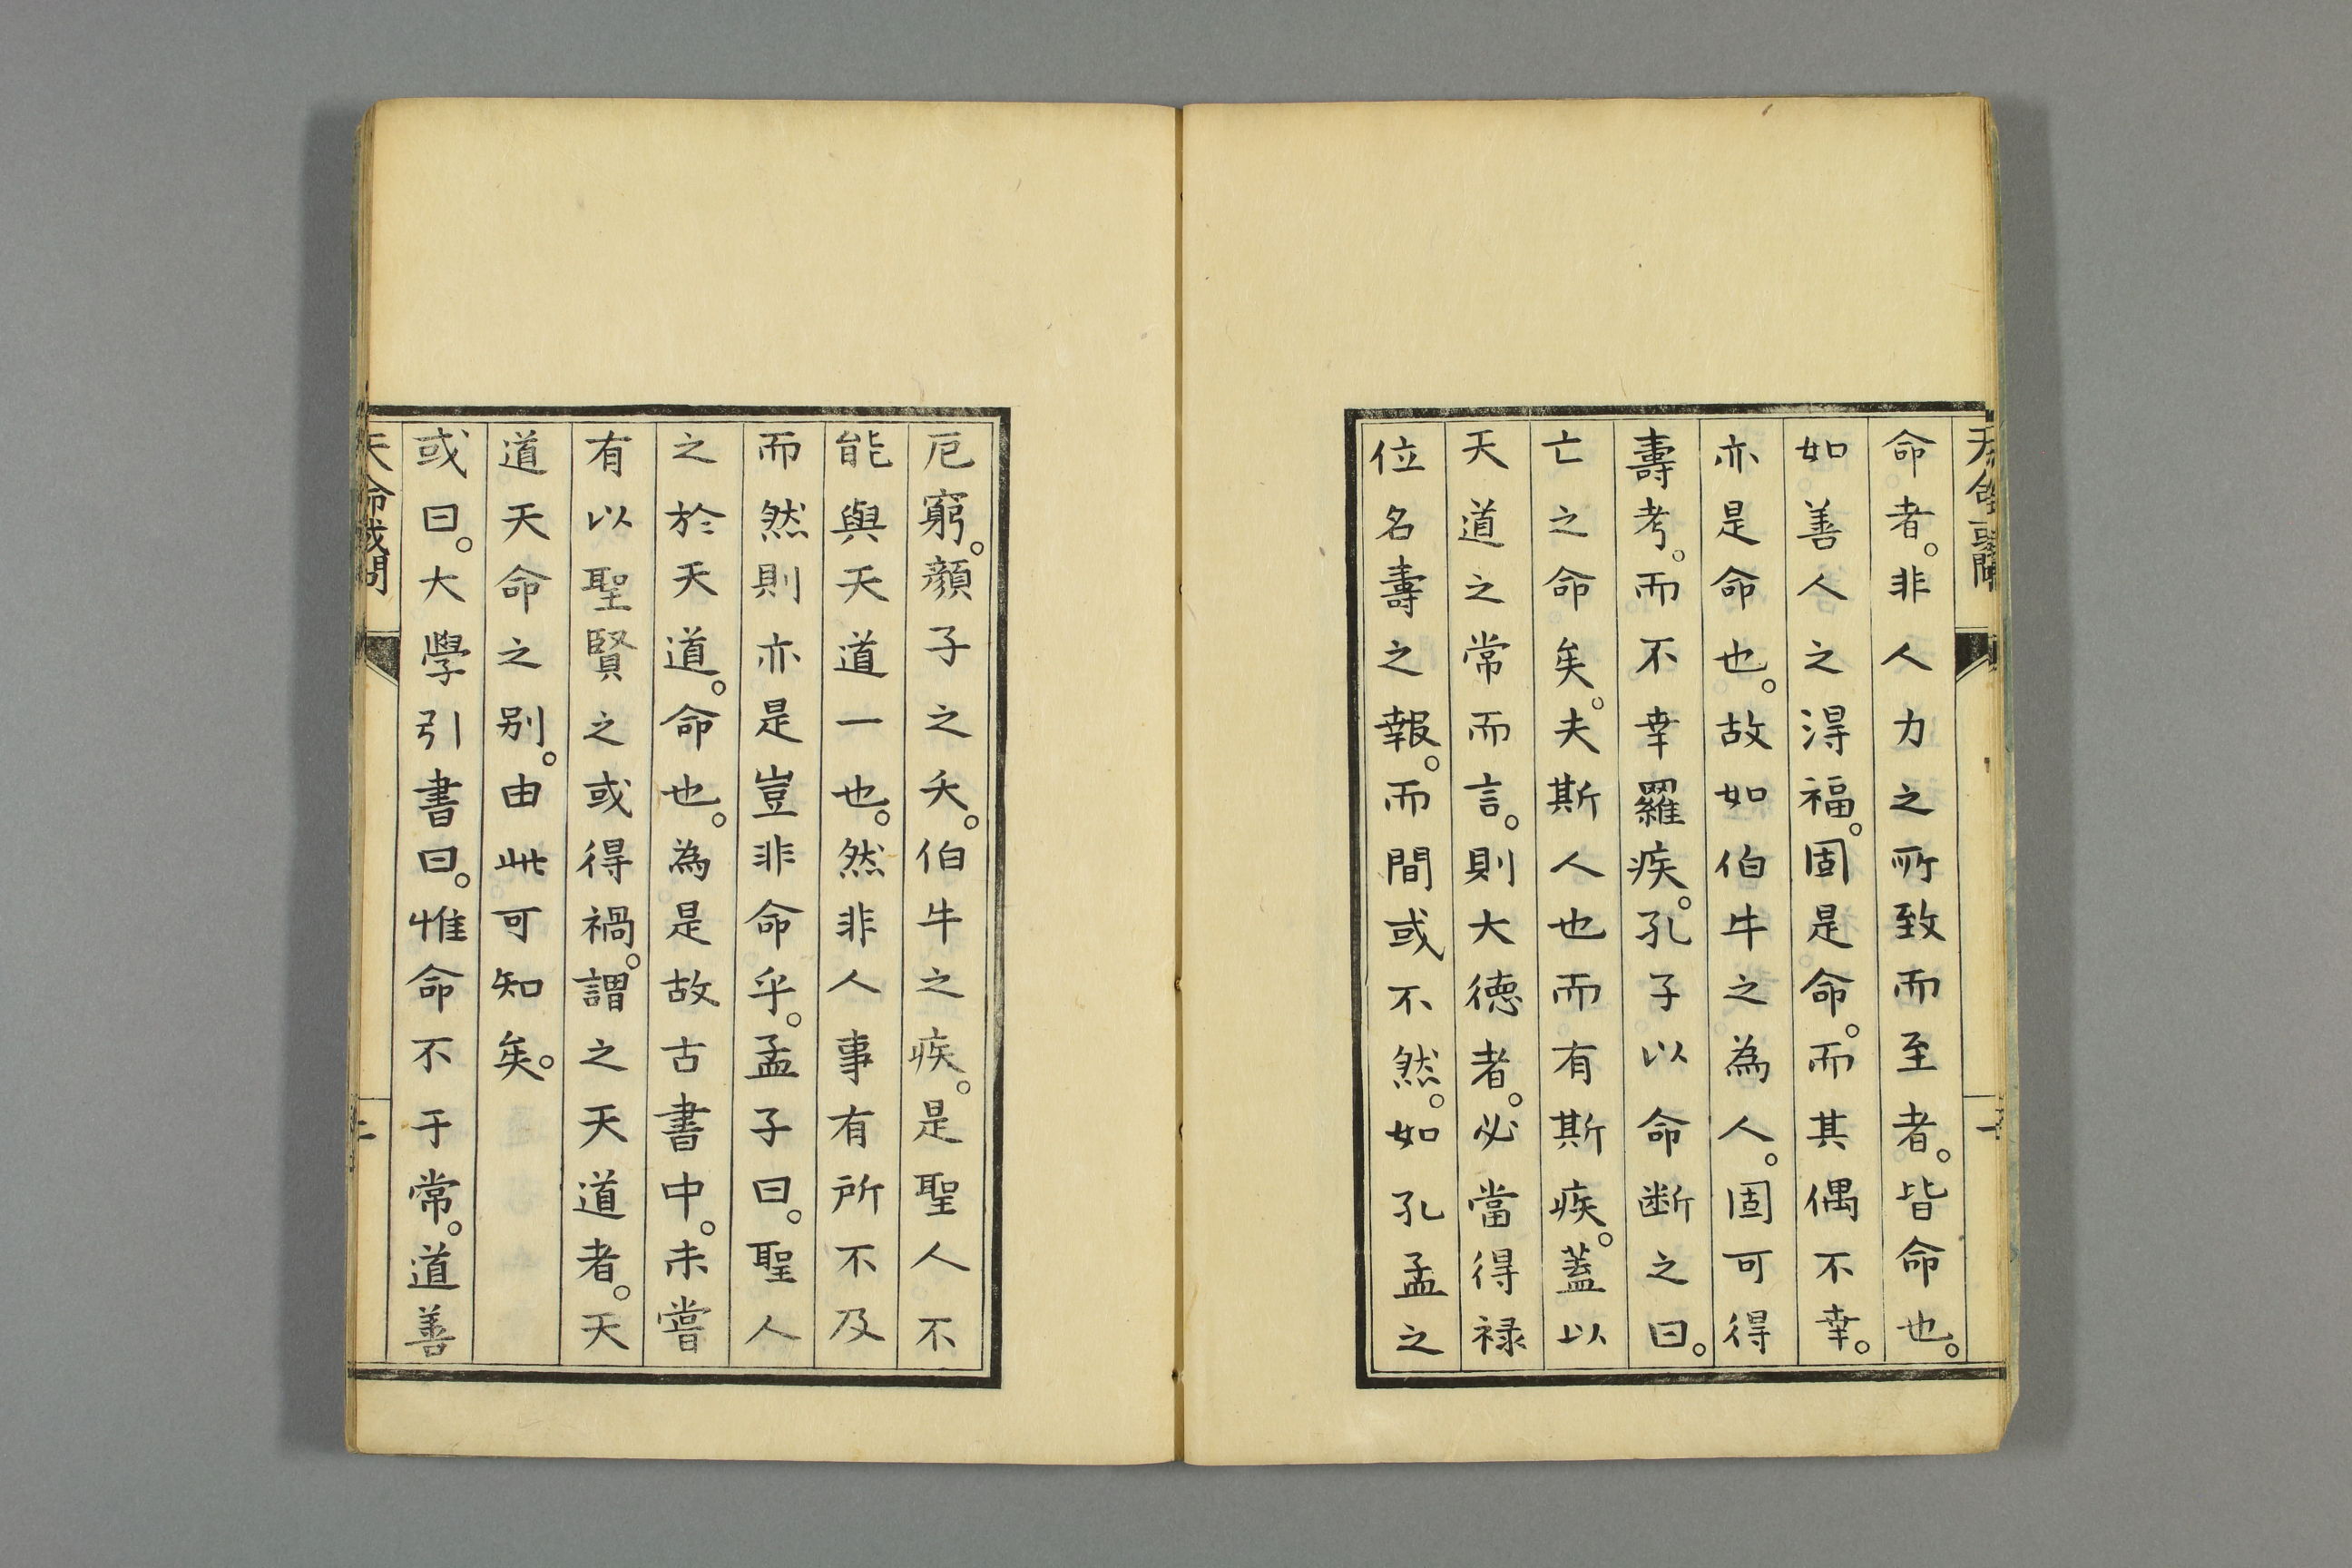 命者。非人力之所致而至者。皆命也。
如善人之淂福。固是命。而其偶不幸。
亦是命也。故如伯牛之為人。固可得
壽考。而不幸羅疾。孔子以命断之曰。
亡之命矣。夫斯人也而有斯疾。蓋以
天道之常而言。則大徳者。必當得禄
位名壽之報。而間或不然。如孔孟之
厄窮。顏子之夭。伯牛之疾。是聖人不
能與天道一也。然非人事有所不及
而然則亦是豈非命乎。孟子曰。聖人
之於天道。命也。為是故古書中。未嘗
有以聖賢之或得禍。謂之天道者。天
道天命之别。由此可知矣。
或曰。大學引書曰。惟命不于常。道善
天命或問
二